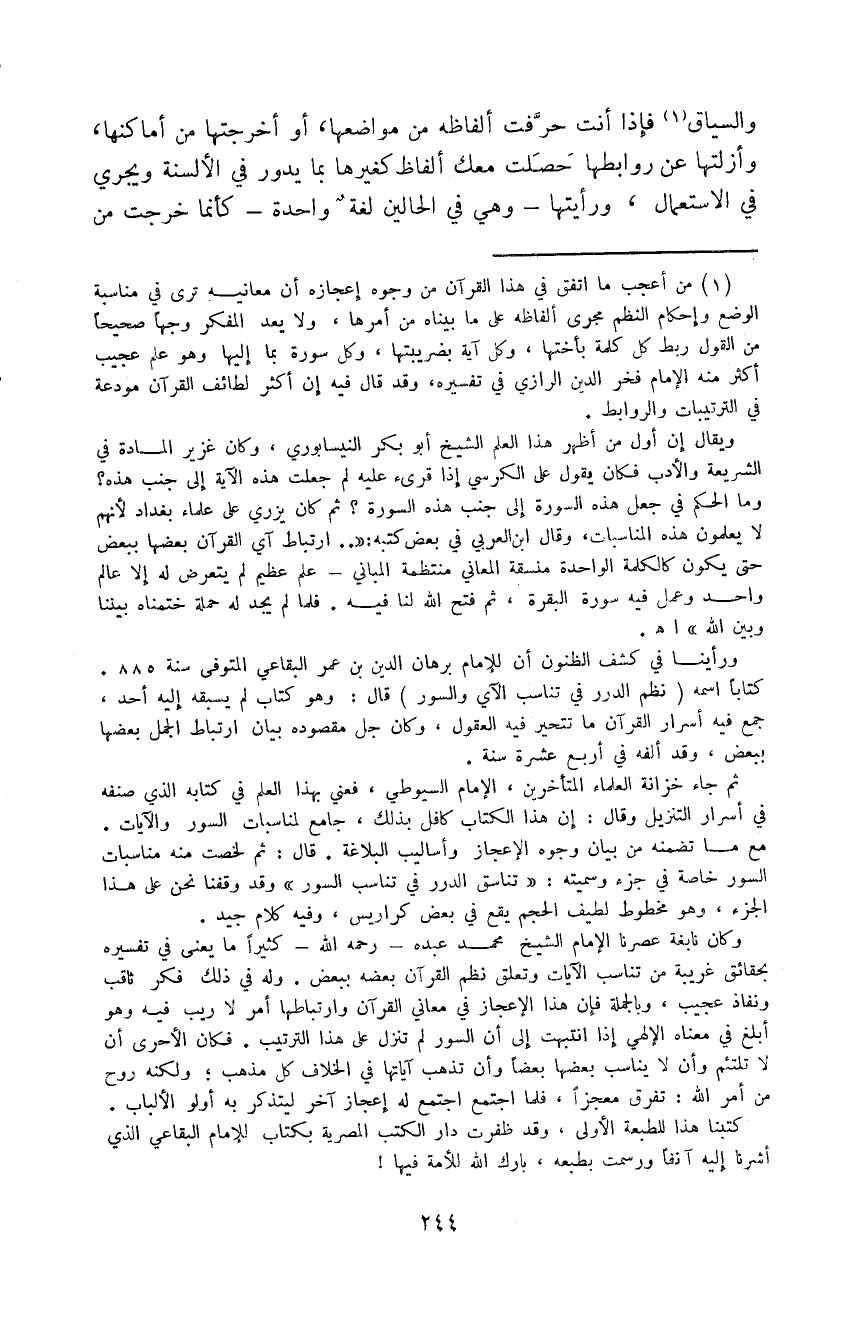 والسياق(١) فإذا أنت حرَّفت ألفاظه من مواضعها، أو أخرجتها من أماكنها،
وأزلتها عن روابطها حَصَلت معك ألفاظ كغيرها بما يدور في الألسنة ويجري
في الاستعمال ، ورأيتها – وهي في الحالين لغةٌ واحدة – كأنما خرجت من
(١) من أعجب ما اتفق في هذا القرآن من وجوه إعجازه أن معانيــه ترى في مناسبة
الوضع وإحكام النظم مجرى ألفاظه على ما بيناه من أمرها ، ولا يعد المفكر وجهاً صحيحاً
من القول ربط كل كلمة بأختها ، وكل آية بضريبتها ، وكل سورة بما إليها وهو علم عجيب
أكثر منه الإمام فخر الدين الرازي في تفسيره، وقد قال فيه إن أكثر لطائف القرآن مودعة
في الترتيبات والروابط .
ويقال إن أول من أظهر هذا العلم الشيخ أبو بكر النيسابوري ، وكان غزير المــادة في
الشريعة والأدب فكان يقول على الكرسي إذا قرىء عليه لم جعلت هذه الآية إلى جنب هذه؟
وما الحكم في جعل هذه السورة إلى جنب هذه السورة ؟ ثم كان يزري على علماء بغداد لأنهم
لا يعلمون هذه المناسبات، وقال ابن العربي في بعض كتبه:«.. ارتباط آي القرآن بعضها ببعض
حتى يكون كالكلمة الواحدة منسقة المعاني منتظمة المباني – علم عظيم لم يتعرض له إلا عالم
واحــد وعمل فيه سورة البقرة ، ثم فتح الله لنا فيــه . فلما لم يجد له حملة ختمناه بيننا
وبين الله » ا ه .
ورأينــا في كشف الظنون أن للإمام برهان الدين بن عمر البقاعي المتوفى سنة ٨٨٥ .
كتاباً اسمه ( نظم الدرر في تناسب الآي والسور ) قال : وهو كتاب لم يسبقه إليه أحد ،
جمع فيه أسرار القرآن ما تتحير فيه العقول ، وكان جل مقصوده بيان ارتباط الجمل بعضها
ببعض ، وقد ألفه في أربع عشرة سنة .
ثم جاء خزانة العلماء المتأخرين ، الإمام السيوطي ، فعني بهذا العلم في كتابه الذي صنفه
في أسرار التنزيل وقال : إن هذا الكتاب كافل بذلك ، جامع لمناسبات السور والآيات .
مع مــا تضمنه من بيان وجوه الإعجاز وأساليب البلاغة . قال : ثم لخصت منه مناسبات
السور خاصة في جزء وسميته : « تناسق الدرر في تناسب السور » وقد وقفنا نحن على هــذا
الجزء ، وهو مخطوط لطيف الحجم يقع في بعض كراريس ، وفيه كلام جيد .
وكان نابغة عصرنا الإمام الشيخ محمــد عبده – رحمه الله – كثيراً ما يعنى في تفسيره
بحقائق غريبة من تناسب الآيات وتعلق نظم القرآن بعضه ببعض . وله في ذلك فكر ثاقب
ونفاذ عجيب ، وبالجملة فإن هذا الإعجاز في معاني القرآن وارتباطها أمر لا ريب فيــه وهو
أبلغ في معناه الإلهي إذا انتبهت إلى أن السور لم تنزل على هذا الترتيب . فكان الأحرى أن
لا تلتئم وأن لا يناسب بعضها بعضاً وأن تذهب آياتها في الخلاف كل مذهب ؛ ولكنه روح
من أمر الله : تفرق معجزاً ، فلما اجتمع اجتمع له إعجاز آخر ليتذكر به أولو الألباب .
كتبنا هذا للطبعة الأولى ، وقد ظفرت دار الكتب المصرية بكتاب للإمام البقاعي الذي
أشرنا إليه آنفاً ورسمت بطبعه ، بارك الله للأمة فيها !
٢٤٤